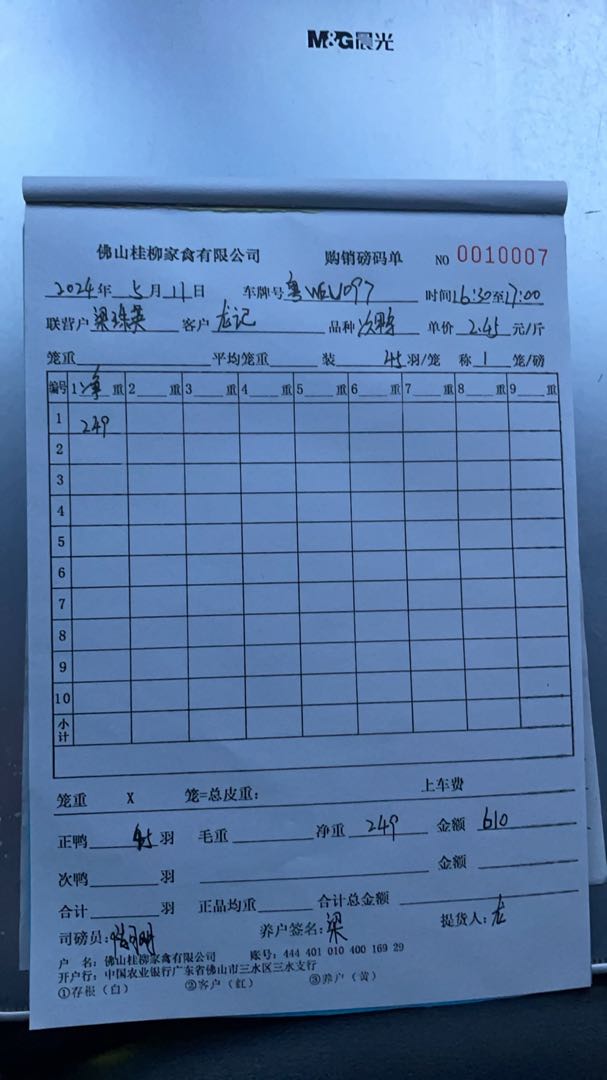 M&G晨光
佛山桂柳家禽有限公司 购销磅码单 NO 0010007
2024年 5月 11日 车牌号 粤 097 时间16:30至17:00
联营户 梁 英 客户 龙记 品种 次鸭 单价 2.45 元/斤
笼重 平均笼重 装 45 羽/笼 称 1 笼/磅
编号 1 净 重 2 重 3 重 4 重 5 重 6 重 7 重 8 重 9 重
1 249
2
3
4
5
6
7
8
9
10
小计
笼重 X 笼=总皮重: 上车费
正鸭 45 羽 毛重 净重 249 金额 610
次鸭 羽 金额
合计 羽 正品均重 合计总金额
司磅员: 养户签名: 梁 提货人: 龙
户 名: 佛山桂柳家禽有限公司 账号: 444 401 010 400 169 29
开户行: 中国农业银行广东省佛山市三水区三水支行
①存根(白) ②客户(红) ③养户(黄)